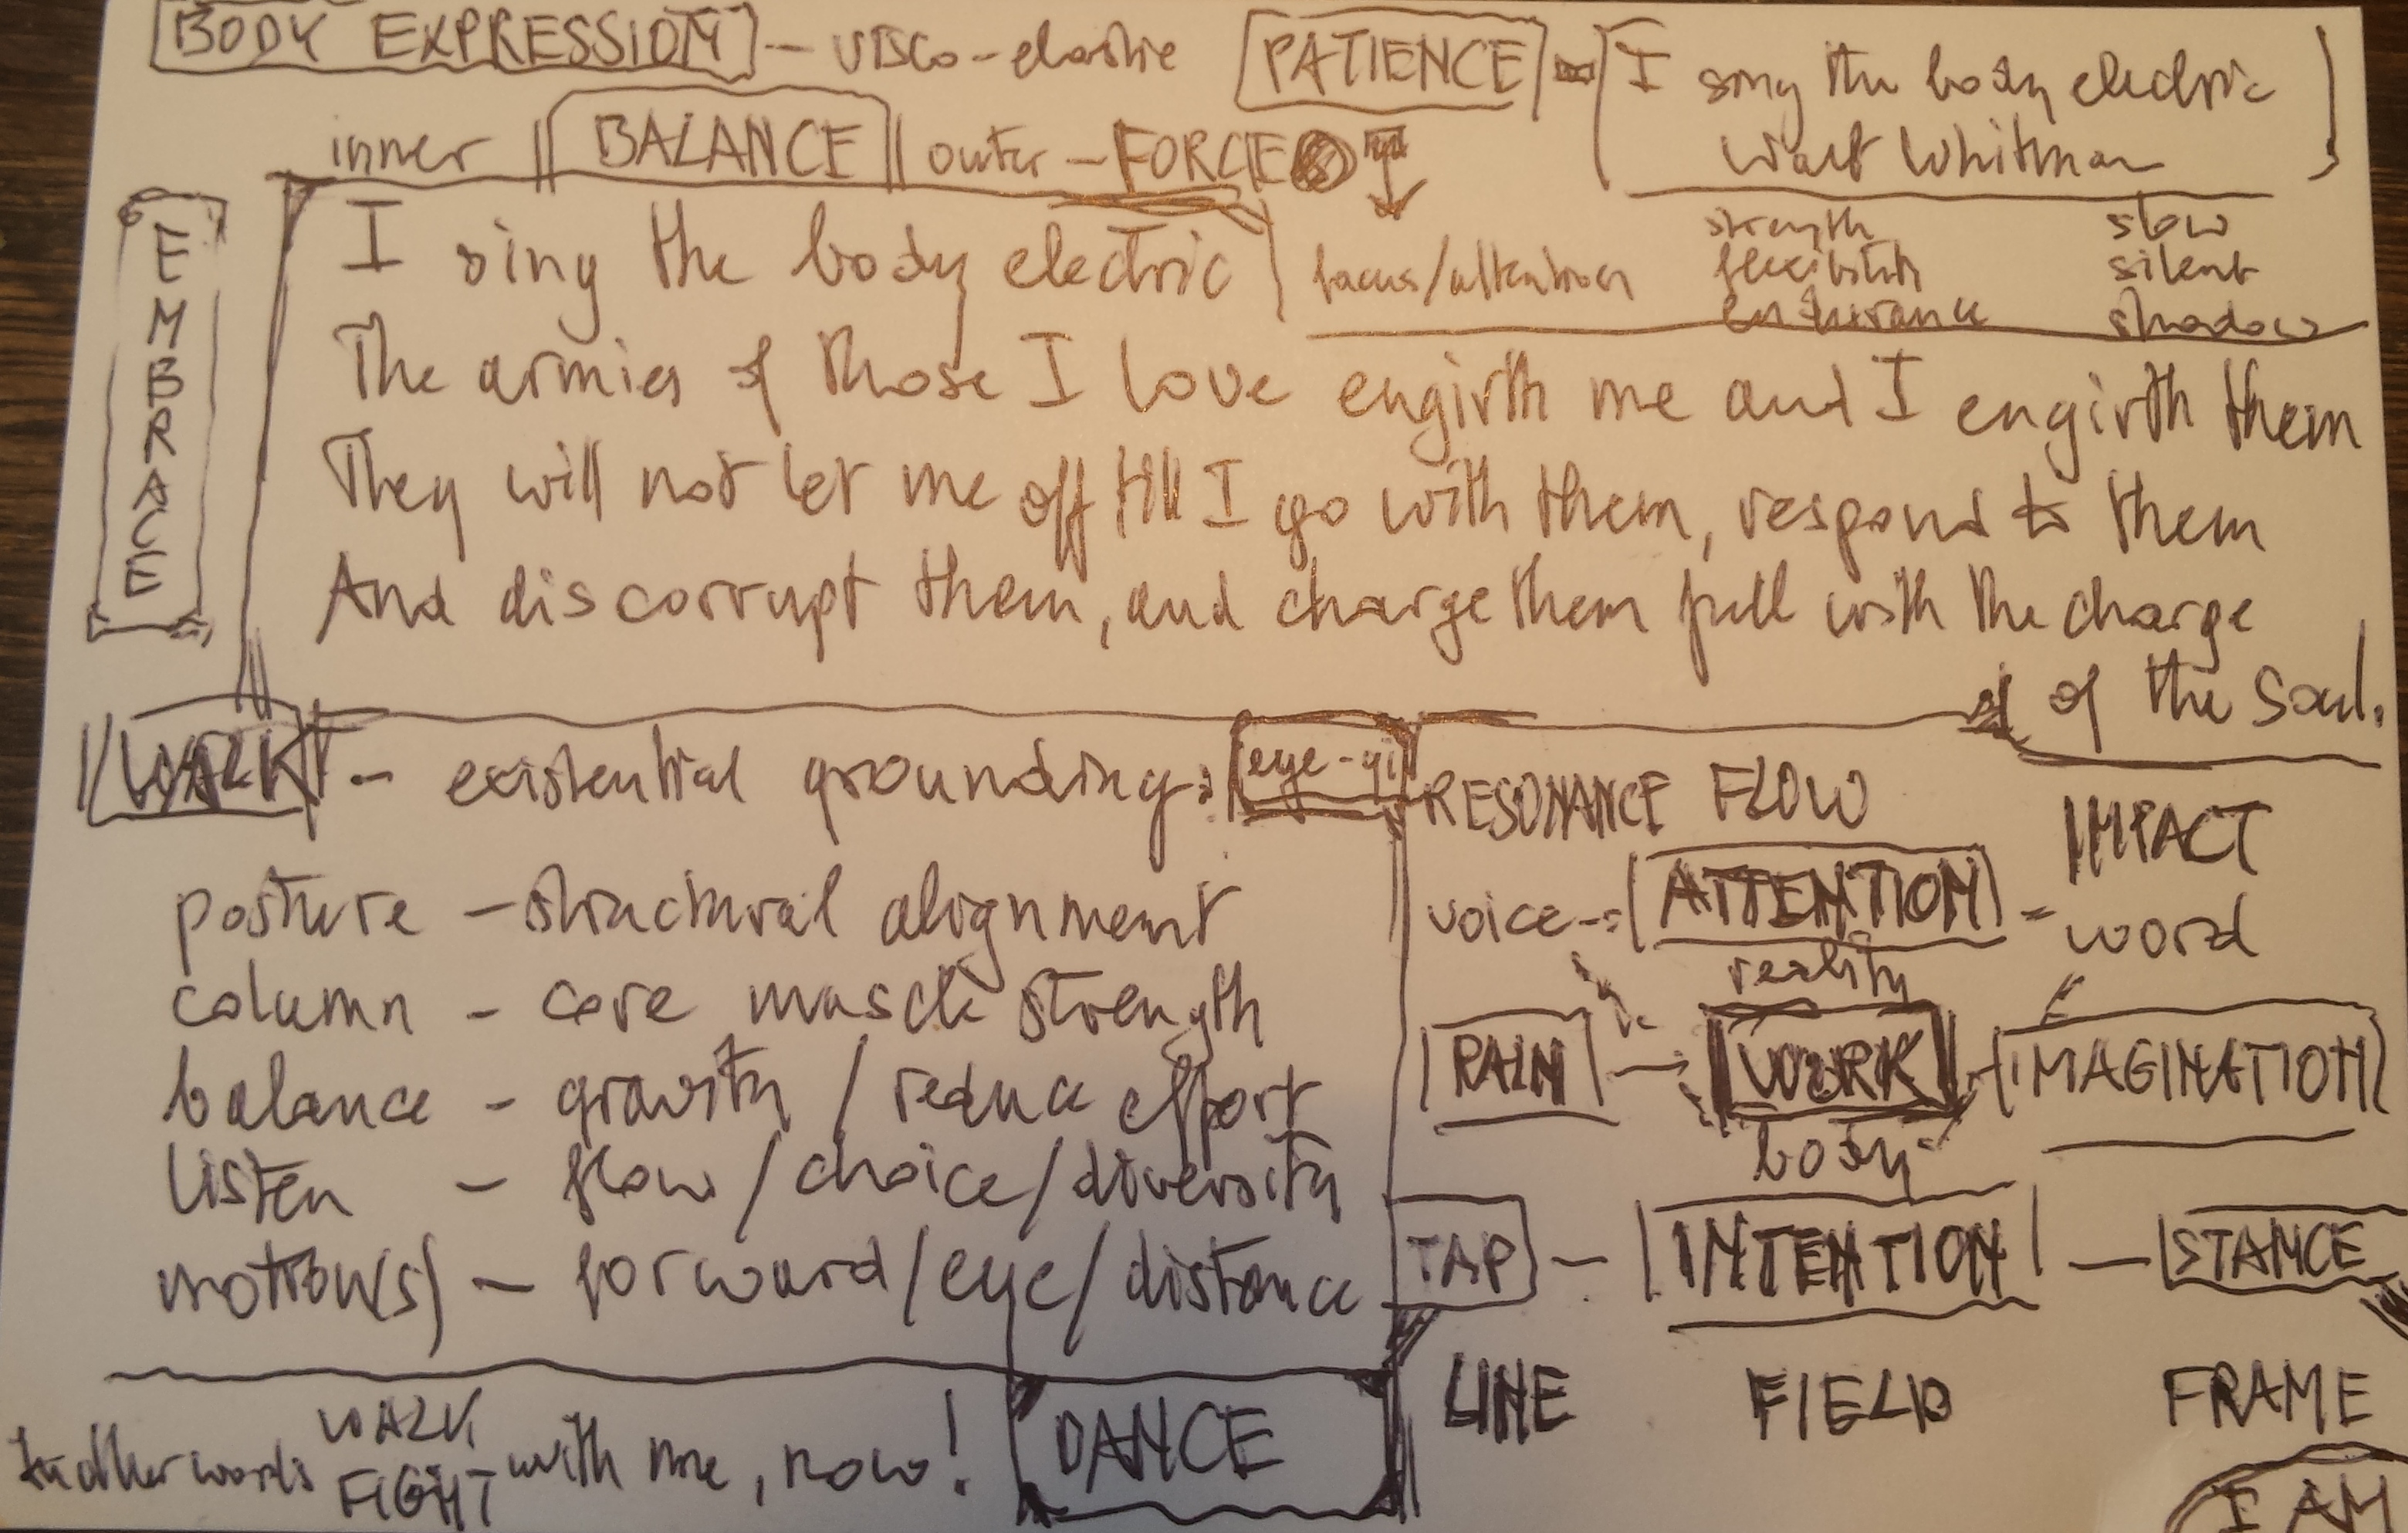 BODY EXPRESSION - visco-elastic PATIENCE = I sing the body electric
Walt Whitman
inner BALANCE outer - FORCE
EMBRACE
I sing the body electric focus/attention
strength slow
flexibility silent
endurance shadow
The armies of those I love engirth me and I engirth them
They will not let me off till I go with them, respond to them
And discorrupt them, and charge them full with the charge
of the Soul.
WALK - existential grounding:
posture - structural alignment
column - core muscle strength
balance - gravity / reduce effort
listen - flow / choice / diversity
motion(s) - forward / eye / distance
in other words WALK
FIGHT with me, now! DANCE
RESONANCE FLOW IMPACT
voice - ATTENTION - word
reality
PAIN - WORK - IMAGINATION
body
TAP - INTENTION - STANCE
LINE FIELD FRAME
I AM